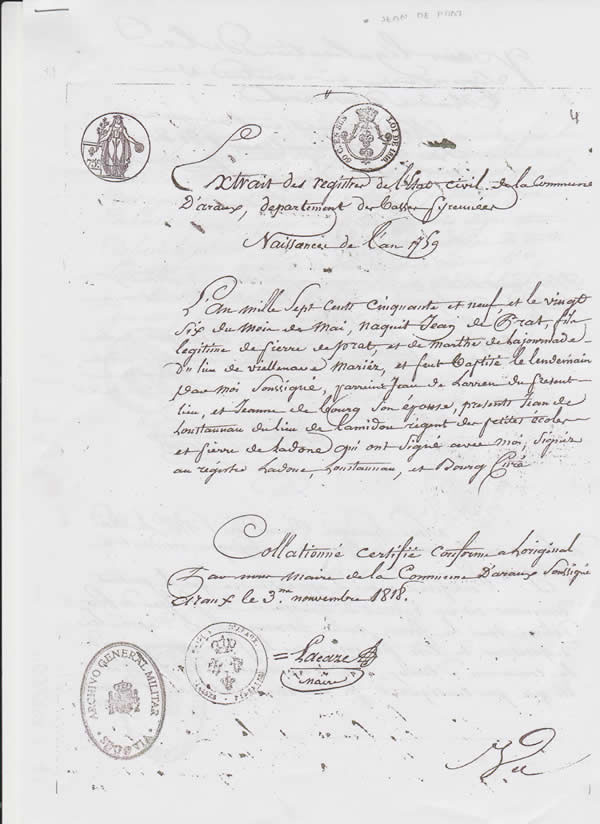 JEAN DE PRAT
4
60 C. EN SUS
LOI DE 1816
Extrait des registres de l'Etat civil de la Commune
D'araux, departement des Basses Pyrennées
Naissances de l'an 1759
L'An mille Sept Cents Cinquante et neuf, et le vingt
Six du Mois de Mai, naquit Jean de Prat, fils
legitime de pierre de prat, et de marthe de Lajournade
Du lieu de viellenave mariés, et fut Baptisé le lendemain
par moi Soussigné, parrains Jean de Larrieu du present
lieu, et Jeanne de Bourg Son épouse, presents Jean de
Loustaunau du lieu de Camidou regent des petites écoles
et pierre de Ladone qui ont signé avec moi, signés
au registre Ladone, Loustaunau, et Bourg Curé
Collationné certifié conforme a Loriginal
par nous Maire de la Commune D'araux Soussigné
Araux le 3me novembre 1818.
= Lacaze
Maire
ARCHIVO GENERAL MILITAR
Vu